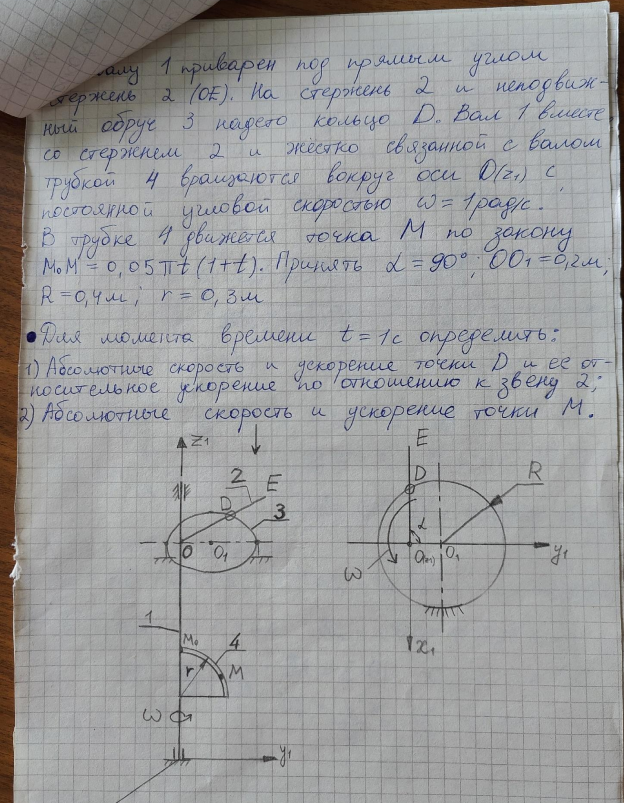 валу 1 приварен под прямым углом
стержень 2 (OE). На стержень 2 и неподвиж-
ный обруч 3 надето кольцо D. Вал 1 вместе
со стержнем 2 и жёстко связанной с валом
трубкой 4 вращаются вокруг оси O(z₁) с
постоянной угловой скоростью ω = 1 рад/с.
В трубке 4 движется точка M по закону
M₀M = 0,05πt(1+t). Принять α = 90°; OO₁ = 0,2м;
R = 0,4м; r = 0,3м
• Для момента времени t = 1с определить:
1) Абсолютные скорость и ускорение точки D и ее от-
носительное ускорение по отношению к звену 2;
2) Абсолютные скорость и ускорение точки M.
z₁
2
E
D
3
O
O₁
1
M₀
4
r
M
ω
y₁
E
D
R
α
O(z₁)
O₁
y₁
ω
x₁